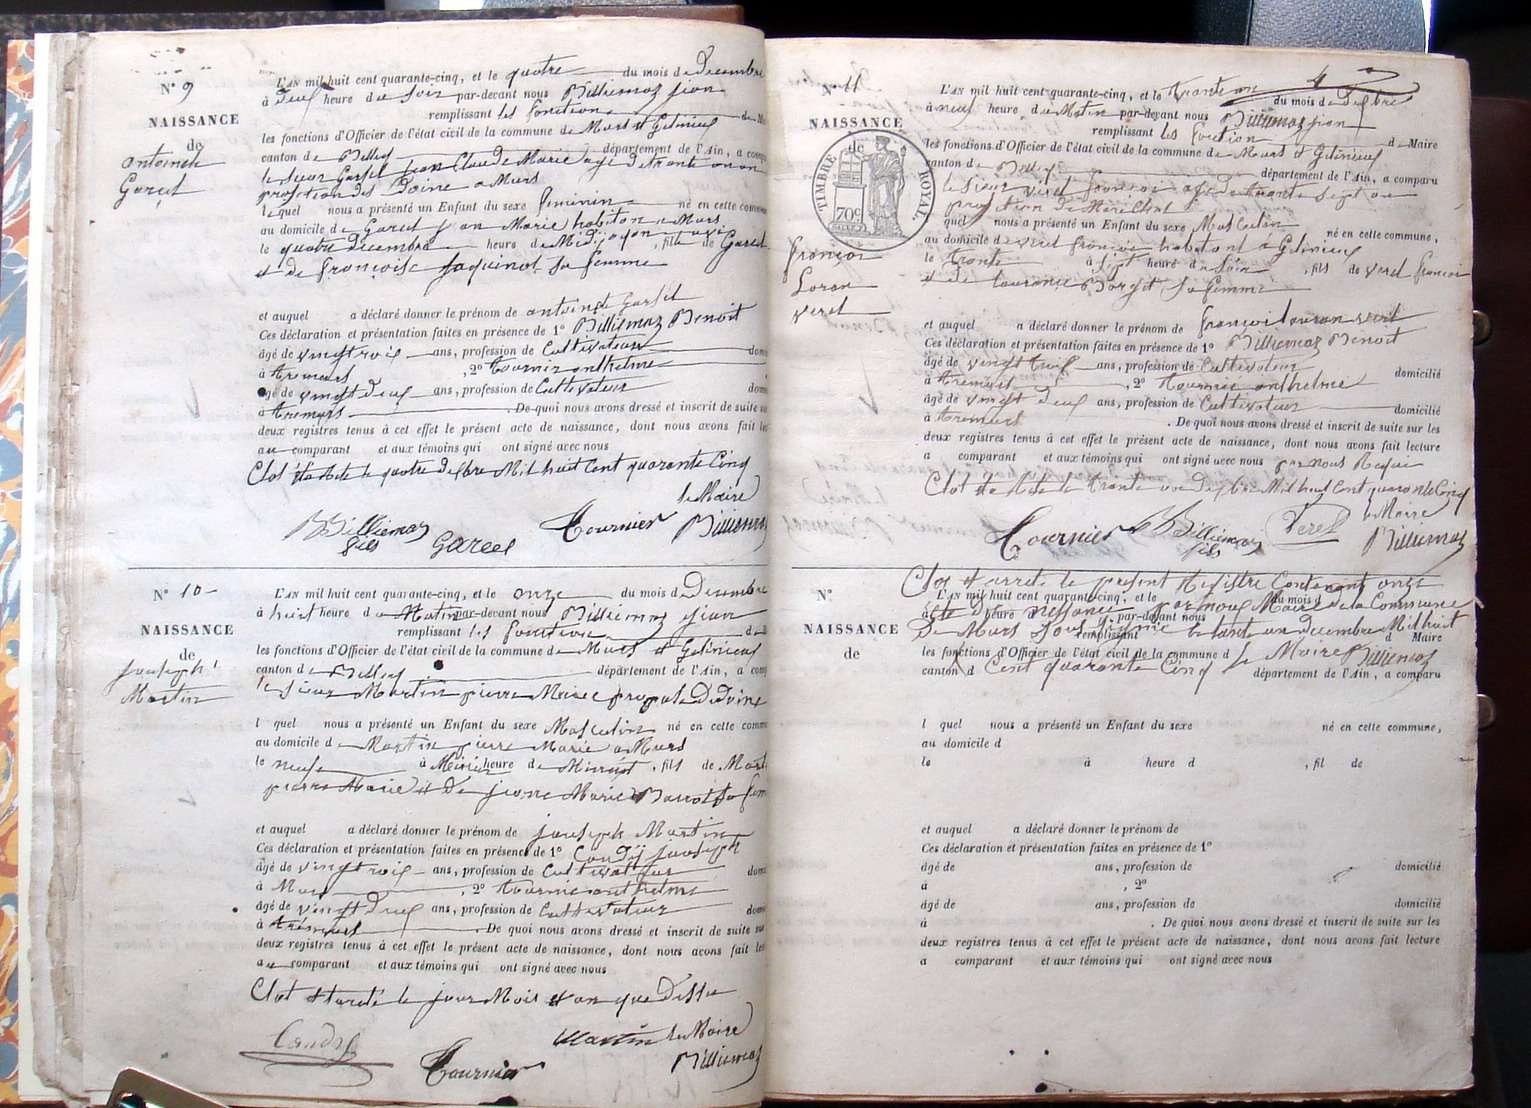 N° 9
NAISSANCE
de
antoinete
Garcel
L'AN mil huit cent quarante-cinq, et le quatre du mois de Decembre
à deux heure du Soir par-devant nous Billiemaz jean
remplissant les fonction
les fonctions d'Officier de l'état civil de la commune de Murs et Gelinieux
canton de Belley département de l'Ain, a comp
le sieur Garsel jean Claude Marie agé de trante
profession des Doine a Murs
lequel nous a présenté un Enfant du sexe feminin né en cette commu
au domicile de Garcel jan Marie habiton a Murs
le quatre decembre heure de Midi, fille de Garcel
et de françoise jaquinot sa femme
et auquel a déclaré donner le prénom de antoinete Garsel
Ces déclaration et présentation faites en présence de 1° Billiemaz Benoit
âgé de vingt trois ans, profession de Cultivateur domi
à tremurs, 2° tournier anthelme
âgé de vingt deux ans, profession de Cultivateur domi
à tremurs. De quoi nous avons dressé et inscrit de suite sur
deux registres tenus à cet effet le présent acte de naissance, dont nous avons fait lec
au comparant et aux témoins qui ont signé avec nous
Clot et a rete le quatre desbre Mil huit Cent quarante Cinq
le Maire
B Billiemaz fils Garcel Tournier Billiemaz
N° 10
NAISSANCE
de
jauseph
Martin
L'AN mil huit cent quarante-cinq, et le onze du mois de Decembre
à huit heure du Matin par-devant nous Billiemaz jean
remplissant les fonction
les fonctions d'Officier de l'état civil de la commune de Murs et Gelinieux
canton de Belley département de l'Ain, a comp
le sieur Martin pierre Marie
l quel nous a présenté un Enfant du sexe Masculin né en cette commu
au domicile de Martin pierre Marie a Murs
le neuf à heure de Minuit, fils de Mart
pierre Marie et de jeane Marie sa fem
et auquel a déclaré donner le prénom de jauseph Martin
Ces déclaration et présentation faites en présence de 1° Candy jauseph
âgé de vingt trois ans, profession de Cultivateur domi
à Murs, 2° tournier anthelme
âgé de vingt deux ans, profession de Cultivateur domi
à tremurs. De quoi nous avons dressé et inscrit de suite sur
deux registres tenus à cet effet le présent acte de naissance, dont nous avons fait lec
au comparant et aux témoins qui ont signé avec nous
Clot et areté le jour Mois et an que Dessu
Candy Tournier Martin le Maire
Billiemaz
4
11
NAISSANCE
de
TIMBRE ROYAL.
70c
françoi
Loran
verel
L'AN mil huit cent quarante-cinq, et le trante un du mois de desbre
à neuf heure du Matin par-devant nous Billiemaz jean
remplissant les fonction d Maire
les fonctions d'Officier de l'état civil de la commune de Murs et Gelinieux
canton de Belley département de l'Ain, a comparu
le Sieur verel françoi agé de trante Sept an
profession de Marechal
quel nous a présenté un Enfant du sexe Masculin né en cette commune,
au domicile de verel françoi habitant a Gelinieux
le trante à Sept heure du Soir, fils de verel françoi
et de Laurence sa femme
et auquel a déclaré donner le prénom de françoi lauran verel
Ces déclaration et présentation faites en présence de 1° Billiemaz Benoit
âgé de vingt trois ans, profession de Cultivateur domicilié
à tremurs, 2° tournier anthelme
âgé de vingt deux ans, profession de Cultivateur domicilié
à tremurs. De quoi nous avons dressé et inscrit de suite sur les
deux registres tenus à cet effet le présent acte de naissance, dont nous avons fait lecture
a comparant et aux témoins qui ont signé avec nous par nous Requi
Clot et a rete le trante un desbre Mil huit Cent quarante Cinq
le Maire
Tournier B Billiemaz fils Verel Billiemaz
Clos et arrete le present Registre Contenant onze
acte de nessance par nous Maire de la Commune
De Murs Sous Signé le trante un decembre Mil huit
Cent quarante Cinq Le Maire Billiemaz
N°
NAISSANCE
de
L'AN mil huit cent quarante-cinq, et le du mois d
à heure d par-devant nous
remplissant d Maire
les fonctions d'Officier de l'état civil de la commune d
canton d département de l'Ain, a comparu
l quel nous a présenté un Enfant du sexe né en cette commune,
au domicile d
le à heure d, fil de
et auquel a déclaré donner le prénom de
Ces déclaration et présentation faites en présence de 1°
âgé de ans, profession de domicilié
à, 2°
âgé de ans, profession de domicilié
à. De quoi nous avons dressé et inscrit de suite sur les
deux registres tenus à cet effet le présent acte de naissance, dont nous avons fait lecture
a comparant et aux témoins qui ont signé avec nous